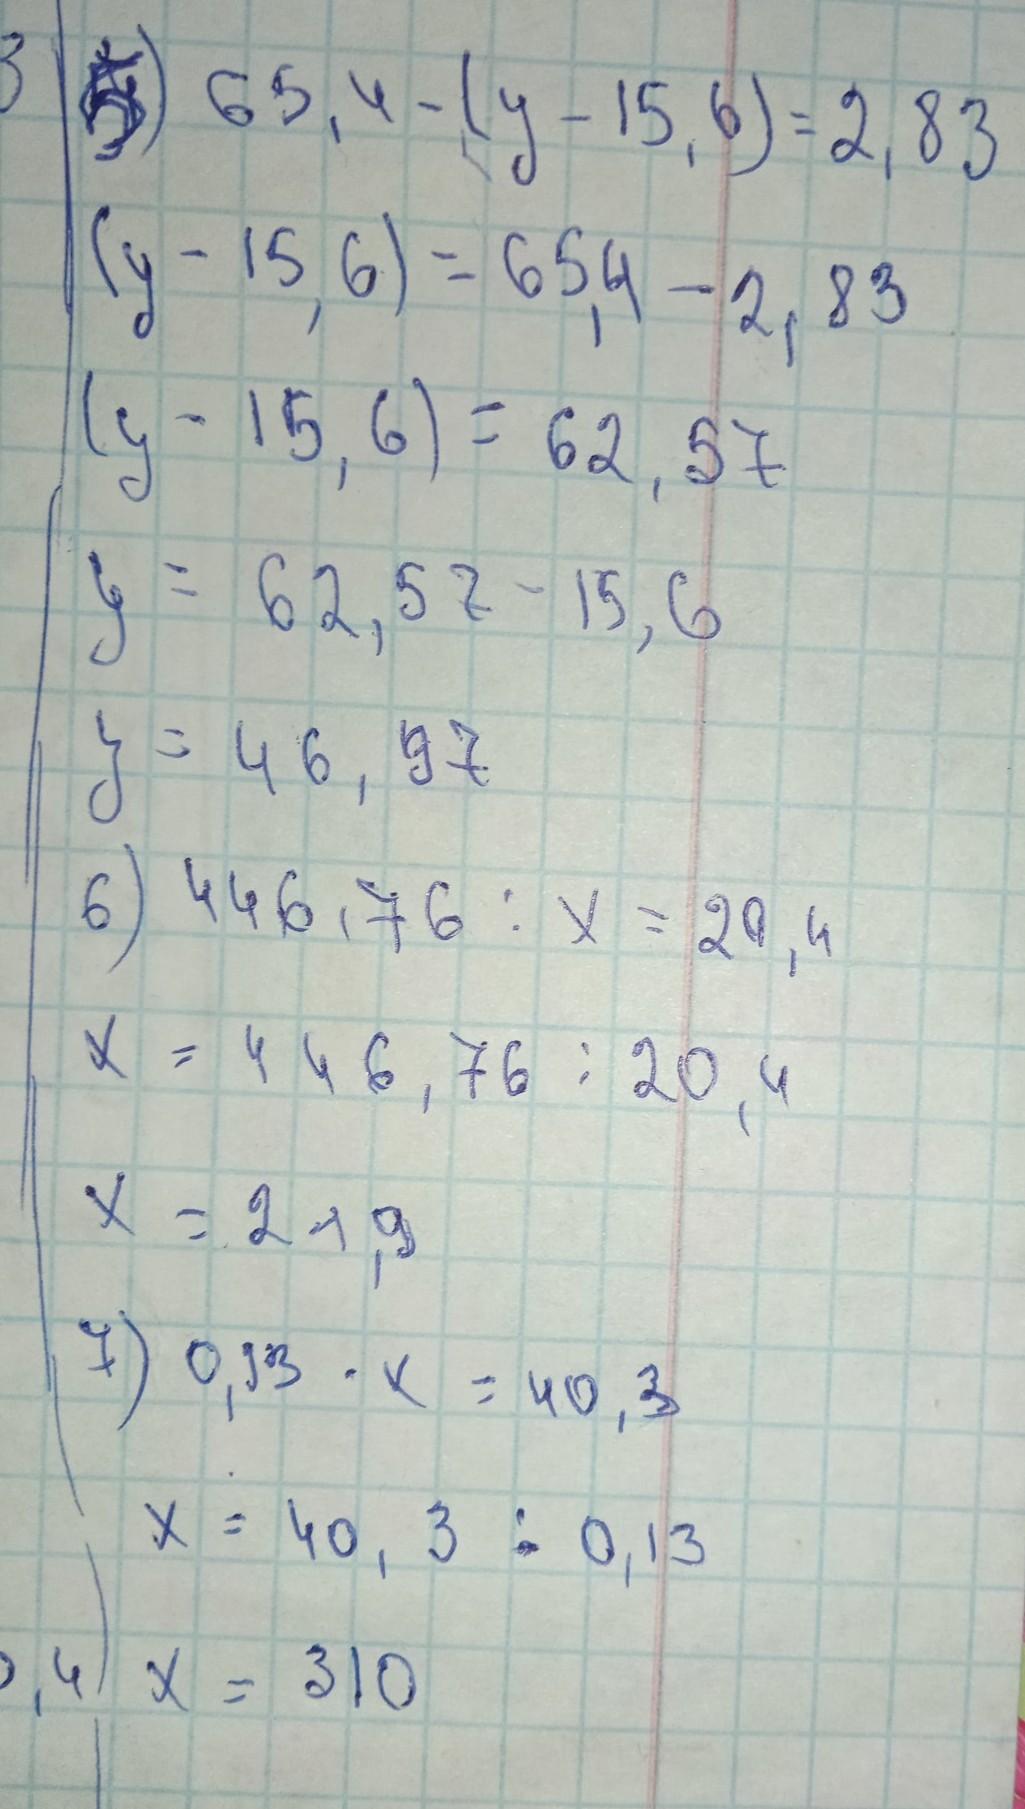 3
5) 65,4 - (y - 15,6) = 2,83
(y - 15,6) = 65,4 - 2,83
(y - 15,6) = 62,57
y = 62,57 - 15,6
y = 46,97
6) 446,76 : x = 20,4
x = 446,76 : 20,4
x = 21,9
7) 0,13 · x = 40,3
x = 40,3 : 0,13
,4
x = 310